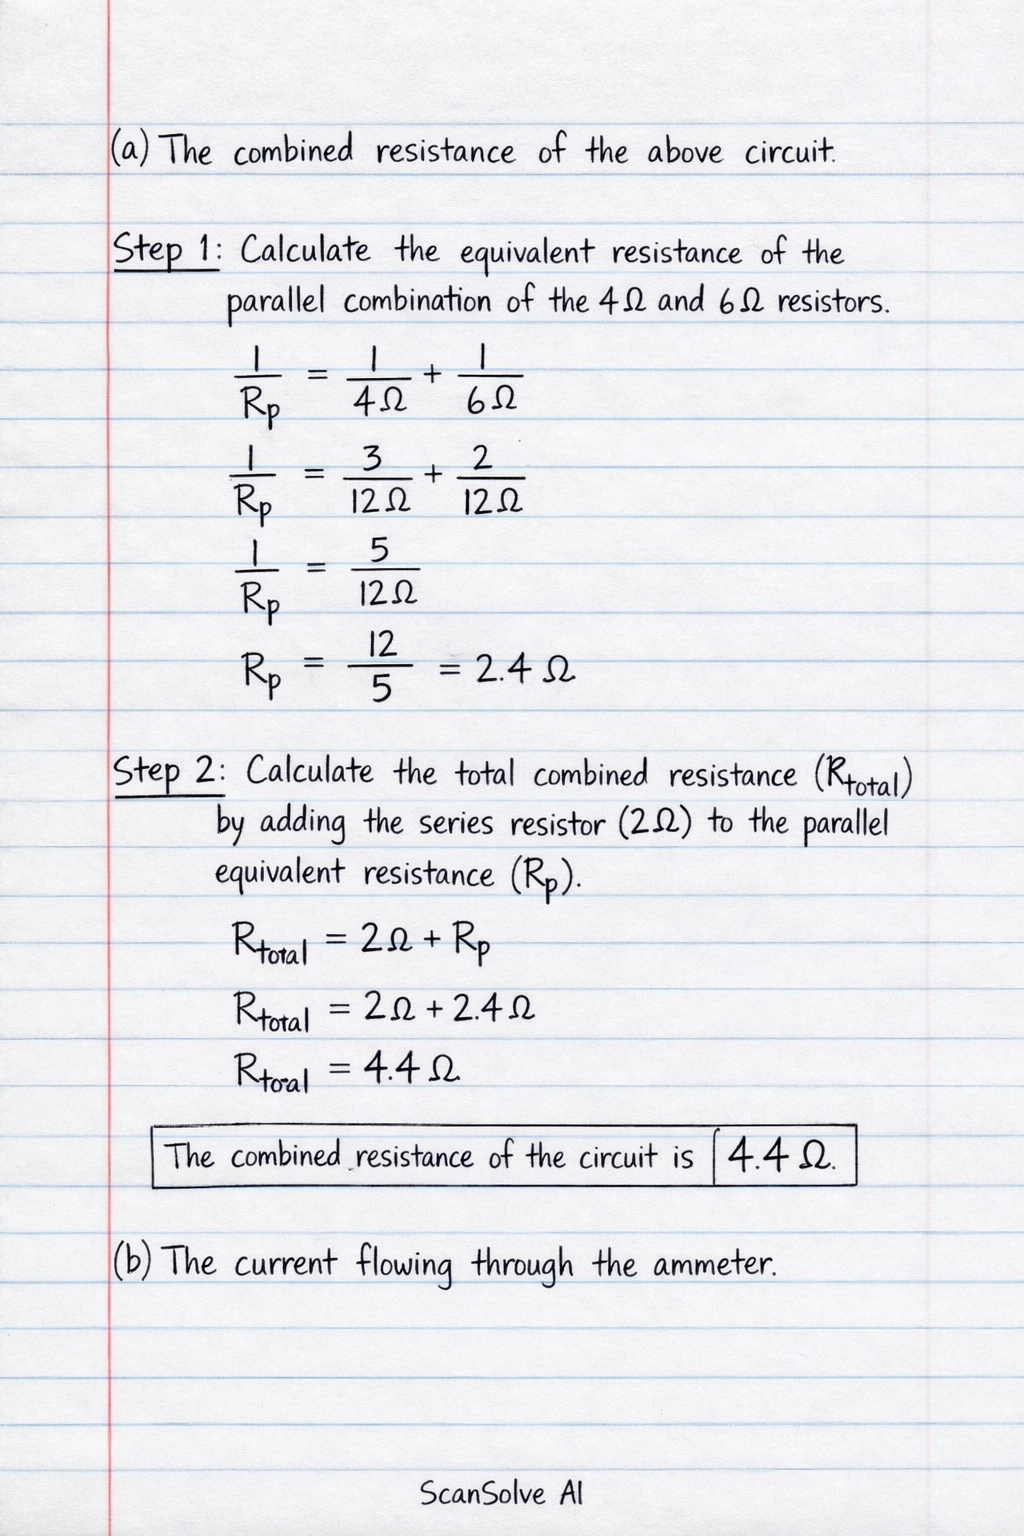 (a) The combined resistance of the above circuit.
Step 1: Calculate the equivalent resistance of the
parallel combination of the 4Ω and 6Ω resistors.
1/Rp = 1/4Ω + 1/6Ω
1/Rp = 3/12Ω + 2/12Ω
1/Rp = 5/12Ω
Rp = 12/5 = 2.4 Ω
Step 2: Calculate the total combined resistance (Rtotal)
by adding the series resistor (2Ω) to the parallel
equivalent resistance (Rp).
Rtotal = 2Ω + Rp
Rtotal = 2Ω + 2.4Ω
Rtoal = 4.4 Ω
The combined resistance of the circuit is 4.4 Ω.
(b) The current flowing through the ammeter.
ScanSolve AI